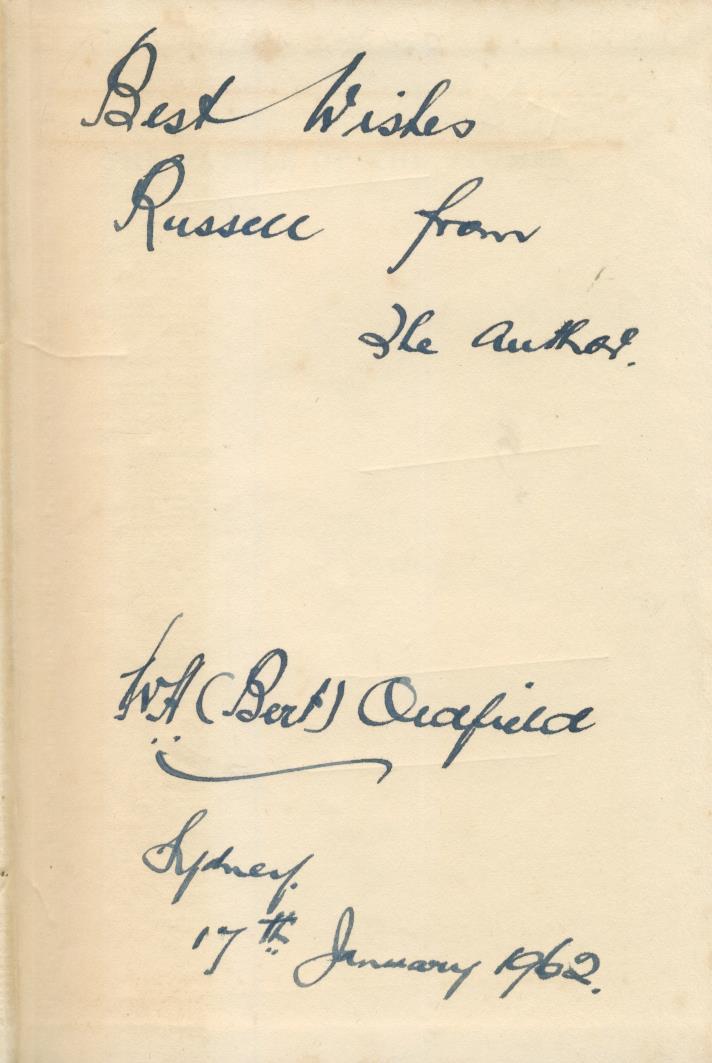 Best Wishes
Russell from
The Author.
WA (Bert) Oldfield
Sydney.
17th January 1962.